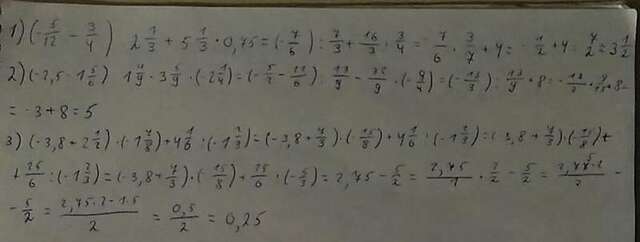 1) (-5/12 - 3/4) 2 1/3 + 5 1/3 · 0,75 = (-7/6) : 7/3 + 16/3 · 3/4 = -7/6 · 3/7 + 4 = -1/2 + 4 = 7/2 = 3 1/2
2) (-2,5 - 1 5/6) 1 4/9 · 3 5/9 · (-2 1/4) = (-5/2 - 11/6) : 13/9 - 32/9 · (-9/4) = (-13/3) : 13/9 + 8 = -13/3 · 9/13 + 8 =
= -3 + 8 = 5
3) (-3,8 + 2 1/2) · (-1 7/8) + 4 1/6 · (-1 2/3) = (-3,8 + 7/3) · (-15/8) + 4 1/6 : (-1 2/3) = (-3,8 + 7/3) · (-15/8) +
+ 25/6 : (-1 2/3) = (-3,8 + 7/3) · (-15/8) + 25/6 · (-5/3) = 2,75 - 5/2 = 2,75/1 · 2/2 - 5/2 = 2,75·2/2 -
- 5/2 = 2,75·2-1·5/2 = 0,5/2 = 0,25